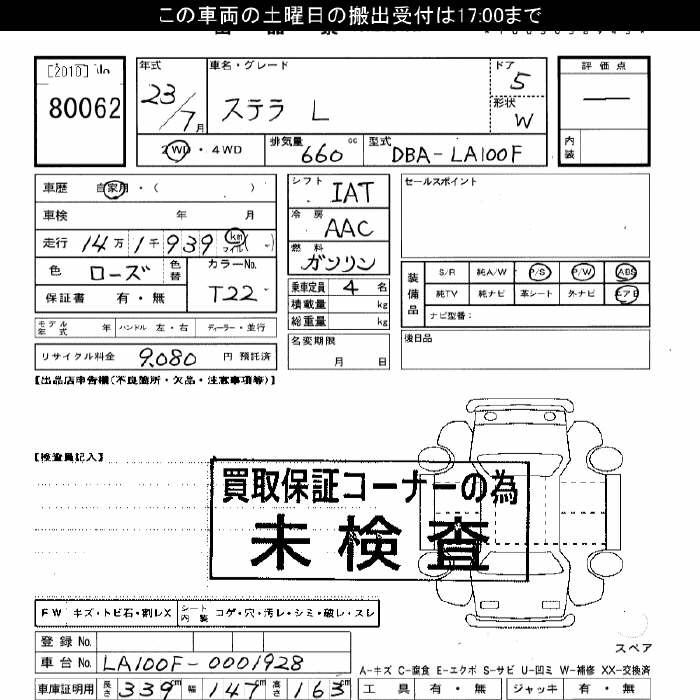 この車両の土曜日の搬出受付は17:00まで
[2010] No
80062
年式
23/7月
車名・グレード
ステラ L
ドア
5
形状
W
評価点
内装
2WD・4WD
排気量
660cc
型式
DBA-LA100F
車歴 自家用・( )
車検 年 月
走行 14万1千939 km マイル( )
色 ローズ
色替
カラーNo.
T22
保証書 有・無
モデル年式 年 ハンドル 左・右 ディーラー・並行
リサイクル料金 9,080 円 預託済
シフト IAT
冷房 AAC
燃料 ガソリン
乗車定員 4 名
積載量 kg
総重量 kg
名変期限
月 日
セールスポイント
装備品
S/R 純A/W P/S P/W ABS
純TV 純ナビ 革シート 外ナビ エアB
ナビ型番:
後日品
【出品店申告欄(不良箇所・欠品・注意事項等)】
【検査員記入】
買取保証コーナーの為
未検査
FW キズ・トビ石・割レX
シート内装 コゲ・穴・汚レ・シミ・破レ・スレ
登録No.
車台No. LA100F-0001928
車庫証明用 長さ 339cm 幅 147cm 高さ 163cm
スペア
A-キズ C-腐食 E-エクボ S-サビ U-凹ミ W-補修 XX-交換済
工具 有・無 ジャッキ 有・無